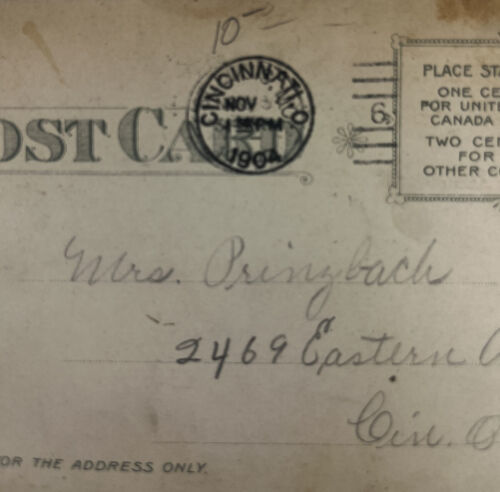 10
CINCINNATI, O.
NOV 3
1904
6
POST CARD
PLACE STA
ONE CE
FOR UNITE
CANADA
TWO CEN
FOR
OTHER CO
Mrs. Prinzbach
2469 Eastern A
Cin. O
FOR THE ADDRESS ONLY.